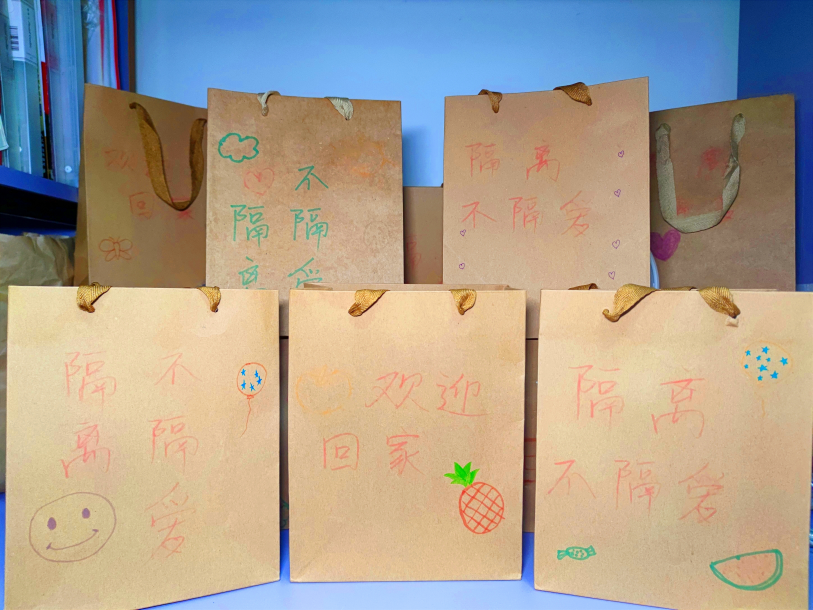 不
隔 隔
离 爱
隔 离
不 隔 爱
隔 不
离 隔
爱
欢迎
回家
隔 离
不 隔 爱